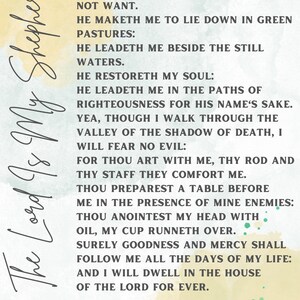 The Lord Is My Shephe
NOT WANT.
HE MAKETH ME TO LIE DOWN IN GREEN
PASTURES:
HE LEADETH ME BESIDE THE STILL
WATERS.
HE RESTORETH MY SOUL:
HE LEADETH ME IN THE PATHS OF
RIGHTEOUSNESS FOR HIS NAME'S SAKE.
YEA, THOUGH I WALK THROUGH THE
VALLEY OF THE SHADOW OF DEATH, I
WILL FEAR NO EVIL:
FOR THOU ART WITH ME, THY ROD AND
THY STAFF THEY COMFORT ME.
THOU PREPAREST A TABLE BEFORE
ME IN THE PRESENCE OF MINE ENEMIES:
THOU ANOINTEST MY HEAD WITH
OIL, MY CUP RUNNETH OVER.
SURELY GOODNESS AND MERCY SHALL
FOLLOW ME ALL THE DAYS OF MY LIFE:
AND I WILL DWELL IN THE HOUSE
OF THE LORD FOR EVER.